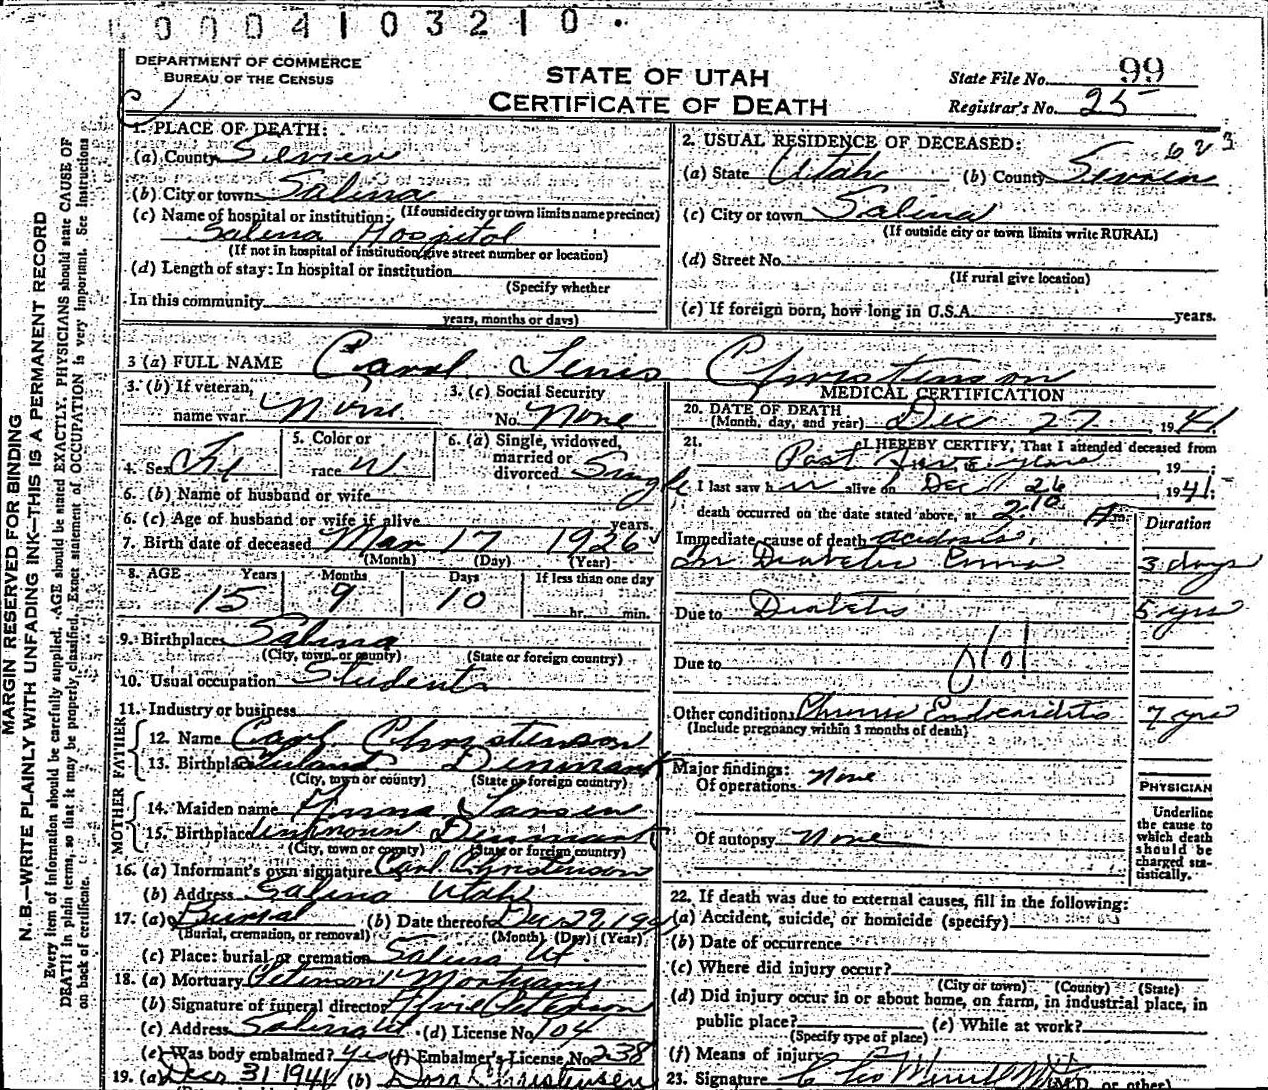 0004103210
DEPARTMENT OF COMMERCE
BUREAU OF THE CENSUS
STATE OF UTAH
CERTIFICATE OF DEATH
State File No. 99
Registrar's No. 25
MARGIN RESERVED FOR BINDING
N. B.—WRITE PLAINLY WITH UNFADING INK—THIS IS A PERMANENT RECORD
Every item of information should be carefully supplied. AGE should be stated EXACTLY. PHYSICIANS should state CAUSE OF
DEATH in plain terms, so that it may be properly classified. Exact statement of OCCUPATION is very important. See instructions
on back of certificate.
1. PLACE OF DEATH:
(a) County Sevier
(b) City or town Salina
(If outside city or town limits name precinct)
(c) Name of hospital or institution:
Salina Hospital
(If not in hospital of institution, give street number or location)
(d) Length of stay: In hospital or institution
(Specify whether
In this community
years, months or days)
2. USUAL RESIDENCE OF DECEASED:
623
(a) State Utah (b) County Sevier
(c) City or town Salina
(If outside city or town limits write RURAL)
(d) Street No.
(If rural give location)
(e) If foreign born, how long in U.S.A. years.
3 (a) FULL NAME Carol Christenson
3. (b) If veteran, name war None
3. (c) Social Security No. None
4. Sex
5. Color or race W
6. (a) Single, widowed, married or divorced Single
6. (b) Name of husband or wife
6. (c) Age of husband or wife if alive years.
7. Birth date of deceased Mar 17 1926
(Month) (Day) (Year)
8. AGE Years Months Days If less than one day
15 9 10 hr. min.
9. Birthplace Salina
(City, town or county) (State or foreign country)
10. Usual occupation Students
11. Industry or business
FATHER
12. Name Carl Christenson
13. Birthplace Denmark
(City, town or county) (State or foreign country)
MOTHER
14. Maiden name Anna Jansen
15. Birthplace unknown Denmark
(City, town or county) (State or foreign country)
16. (a) Informant's own signature Carl Christenson
(b) Address Salina Utah
17. (a) Burial (b) Date thereof Dec 29 194
(Burial, cremation, or removal) (Month) (Day) (Year)
(c) Place: burial or cremation Salina Ut.
18. (a) Mortuary Peterson Mortuary
(b) Signature of funeral director Peterson
(c) Address Salina Ut. (d) License No. 104
(e) Was body embalmed? Yes (f) Embalmer's License No. 238
19. (a) Dec 31 1941 (b) Dora Christensen
MEDICAL CERTIFICATION
20. DATE OF DEATH
(Month, day, and year) Dec 27 1941
21. I HEREBY CERTIFY, That I attended deceased from
Past five years, 19
I last saw h er alive on Dec 26 1941;
death occurred on the date stated above, at 2:10 A m.
Duration
Immediate cause of death acidosis,
In Diabetic Coma 3 days
Due to Diabetis 5 yrs
Due to
61
Other conditions Chronic Endocarditis 7 yrs
(Include pregnancy within 3 months of death)
Major findings:
Of operations None
Of autopsy None
PHYSICIAN
Underline
the cause to
which death
should be
charged sta-
tistically.
22. If death was due to external causes, fill in the following:
(a) Accident, suicide, or homicide (specify)
(b) Date of occurrence
(c) Where did injury occur?
(City or town) (County) (State)
(d) Did injury occur in or about home, on farm, in industrial place, in
public place? (e) While at work?
(Specify type of place)
(f) Means of injury
23. Signature (M.D. or other)